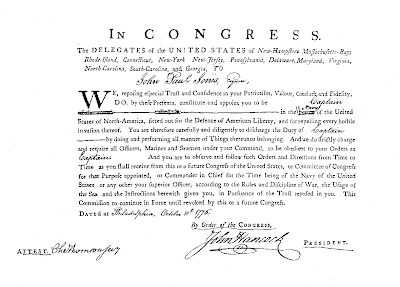 IN CONGRESS.
The DELEGATES of the UNITED STATES of New-Hampshire, Massachusetts-Bay,
Rhode-Island, Connecticut, New-York, New-Jersey, Pennsylvania, Delaware, Maryland, Virginia,
North-Carolina, South-Carolina, and Georgia, TO
John Paul Jones, Esquire
WE, reposing especial Trust and Confidence in your Patriotism, Valour, Conduct, and Fidelity,
DO, by these Presents, constitute and appoint you to be Captain
in the Navy of the United
States of North-America, fitted out for the Defence of American Liberty, and for repelling every hostile
invasion thereof. You are therefore carefully and diligently to discharge the Duty of Captain
by doing and performing all manner of Things thereunto belonging. And we do strictly charge
and require all Officers, Marines and Seamen under your Command, to be obedient to your Orders as
Captain And you are to observe and follow such Orders and Directions from Time to
Time as you shall receive from this or a future Congress of the United States, or Committee of Congress
for that Purpose appointed, or Commander in Chief for the Time being of the Navy of the United
States or any other your superior Officer, according to the Rules and Discipline of War, the Usage of
the Sea and the Instructions herewith given you, in Pursuance of the Trust reposed in you. This
Commission to continue in Force until revoked by this or a future Congress.
DATED at Philadelphia, October 10th 1776.
By Order of the CONGRESS,
John Hancock PRESIDENT.
ATTEST. Cha Thomson Secy